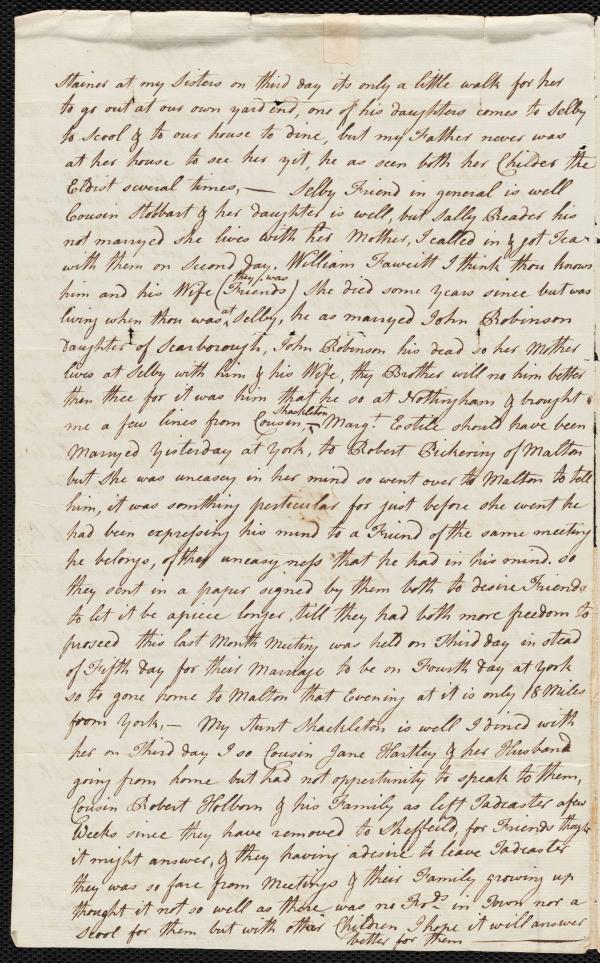 Stainer at my Sisters on third day its only a little walk for her
to go out at our own yard end, one of his daughters comes to Selby
to Scool & to our house to dine, but my Father never was
at her house to see her yit, he as seen both her Childer the
Eldist several times, — Selby Friend in general is well
Cousin Stobbart & her daughter is well, but Sally Reader his
not marryed she lives with her Mother, I called in & got Tea
with them on Second day. William Fawcitt I think thou knows
him and his Wife (they was Friends) She died some years since but was
living when thou was at Selby, he as marryed John Robinson
Daughter of Scarborough, John Robinson his dead so her Mother
lives at Selby with him & his Wife, thy Brother will no him better
then thee for it was him that he so at Nottingham & brought
me a few lines from Cousin Shackleton, — Mary Estile should have been
Marryed Yisterday at York, to Robert Pickering of Malton
but she was uneasey in her mind so went over to Malton to tell
him, it was somthing perticular for just before she went he
had been expressing his mind to a Friend of the same meeting
he belongs, of the uneasyness that he had in his mind. So
they sent in a paper signed by them both to desire Friends
to let it be apiece longer, till they had both more freedom to
proseed this last Month Meeting was held on Third day in stead
of Fifth day for their Marriage to be on Fourth day at York
so to gone home to Malton that Evening at it is only 18 Miles
froom York, — My Aunt Shackleton is well I dined with
her on Third day I so Cousin Jane Hartley & her Husband
going from home but had not oppertunity to speak to them,
Cousin Robert Holborn & his Family as left Tadcaster afew
Weeks since they have removed to Sheffeild, for Friends thought
it might answer, & they having adesire to leave Tadcaster
they was so fare from Meetings & their Family growing up
thought it not so well as there was no Frds in Town nor a
Scool for them but with other Children, I hope it will answer
better for them